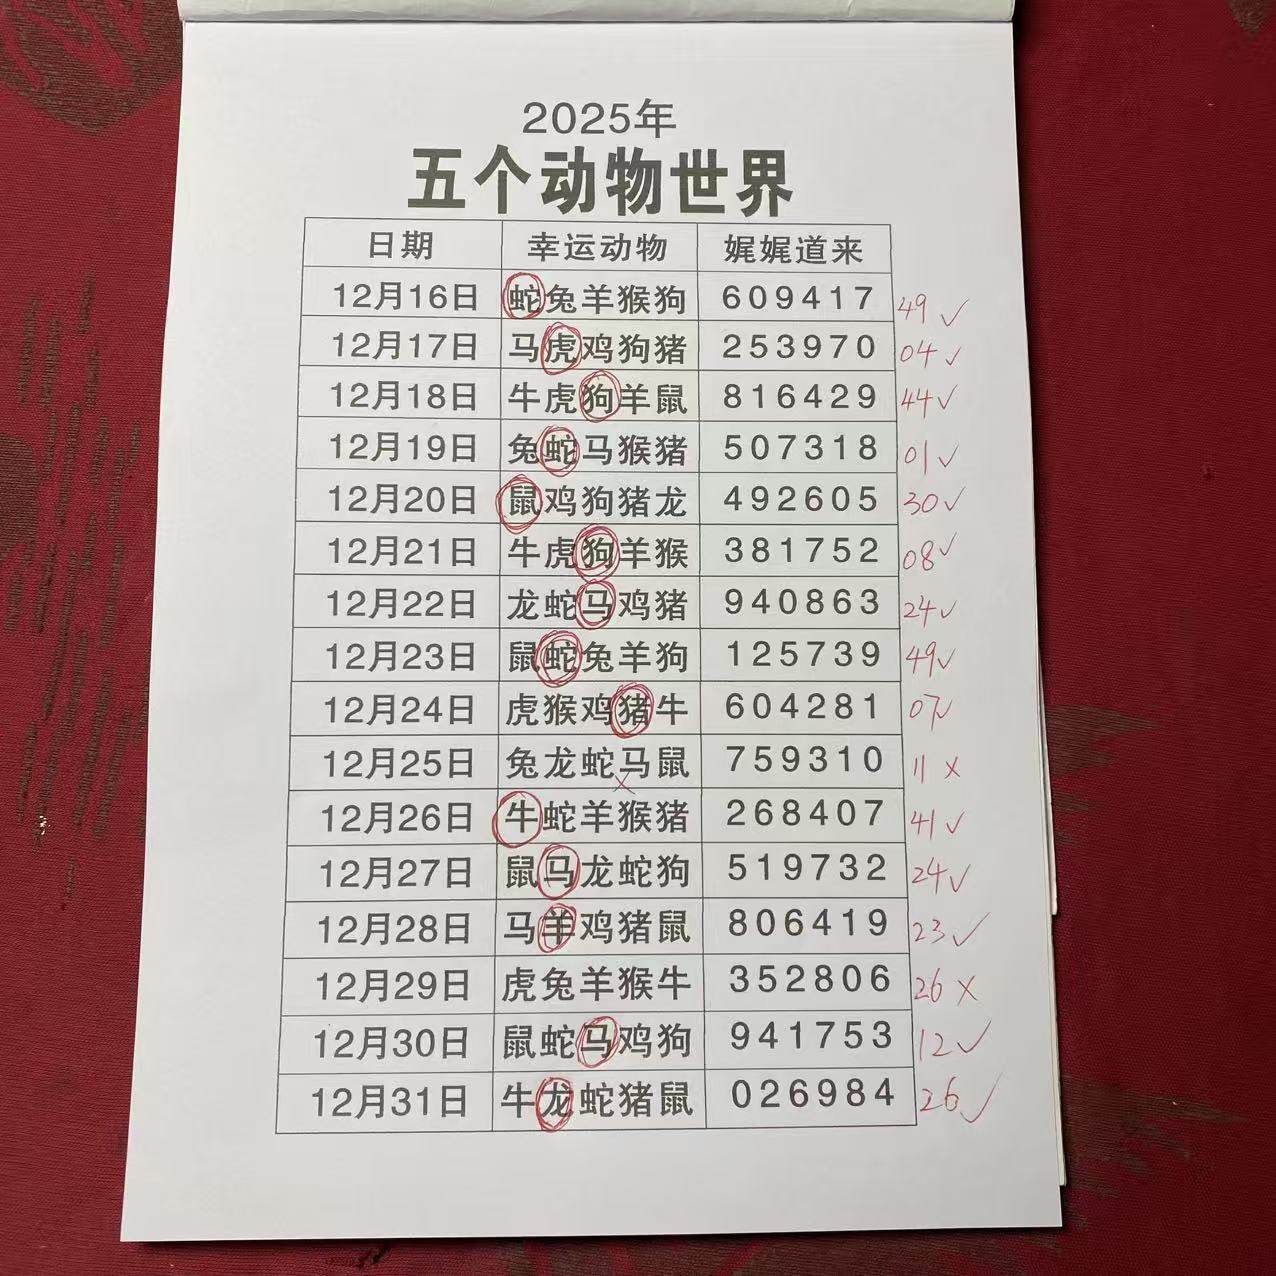 2025年
五个动物世界
日期 幸运动物 娓娓道来
12月16日 蛇兔羊猴狗 609417 49 ✓
12月17日 马虎鸡狗猪 253970 04 ✓
12月18日 牛虎狗羊鼠 816429 44 ✓
12月19日 兔蛇马猴猪 507318 01 ✓
12月20日 鼠鸡狗猪龙 492605 30 ✓
12月21日 牛虎狗羊猴 381752 08 ✓
12月22日 龙蛇马鸡猪 940863 24 ✓
12月23日 鼠蛇兔羊狗 125739 49 ✓
12月24日 虎猴鸡猪牛 604281 07 ✓
12月25日 兔龙蛇马鼠 759310 11 ×
12月26日 牛蛇羊猴猪 268407 41 ✓
12月27日 鼠马龙蛇狗 519732 24 ✓
12月28日 马羊鸡猪鼠 806419 23 ✓
12月29日 虎兔羊猴牛 352806 26 ×
12月30日 鼠蛇马鸡狗 941753 12 ✓
12月31日 牛龙蛇猪鼠 026984 26 ✓